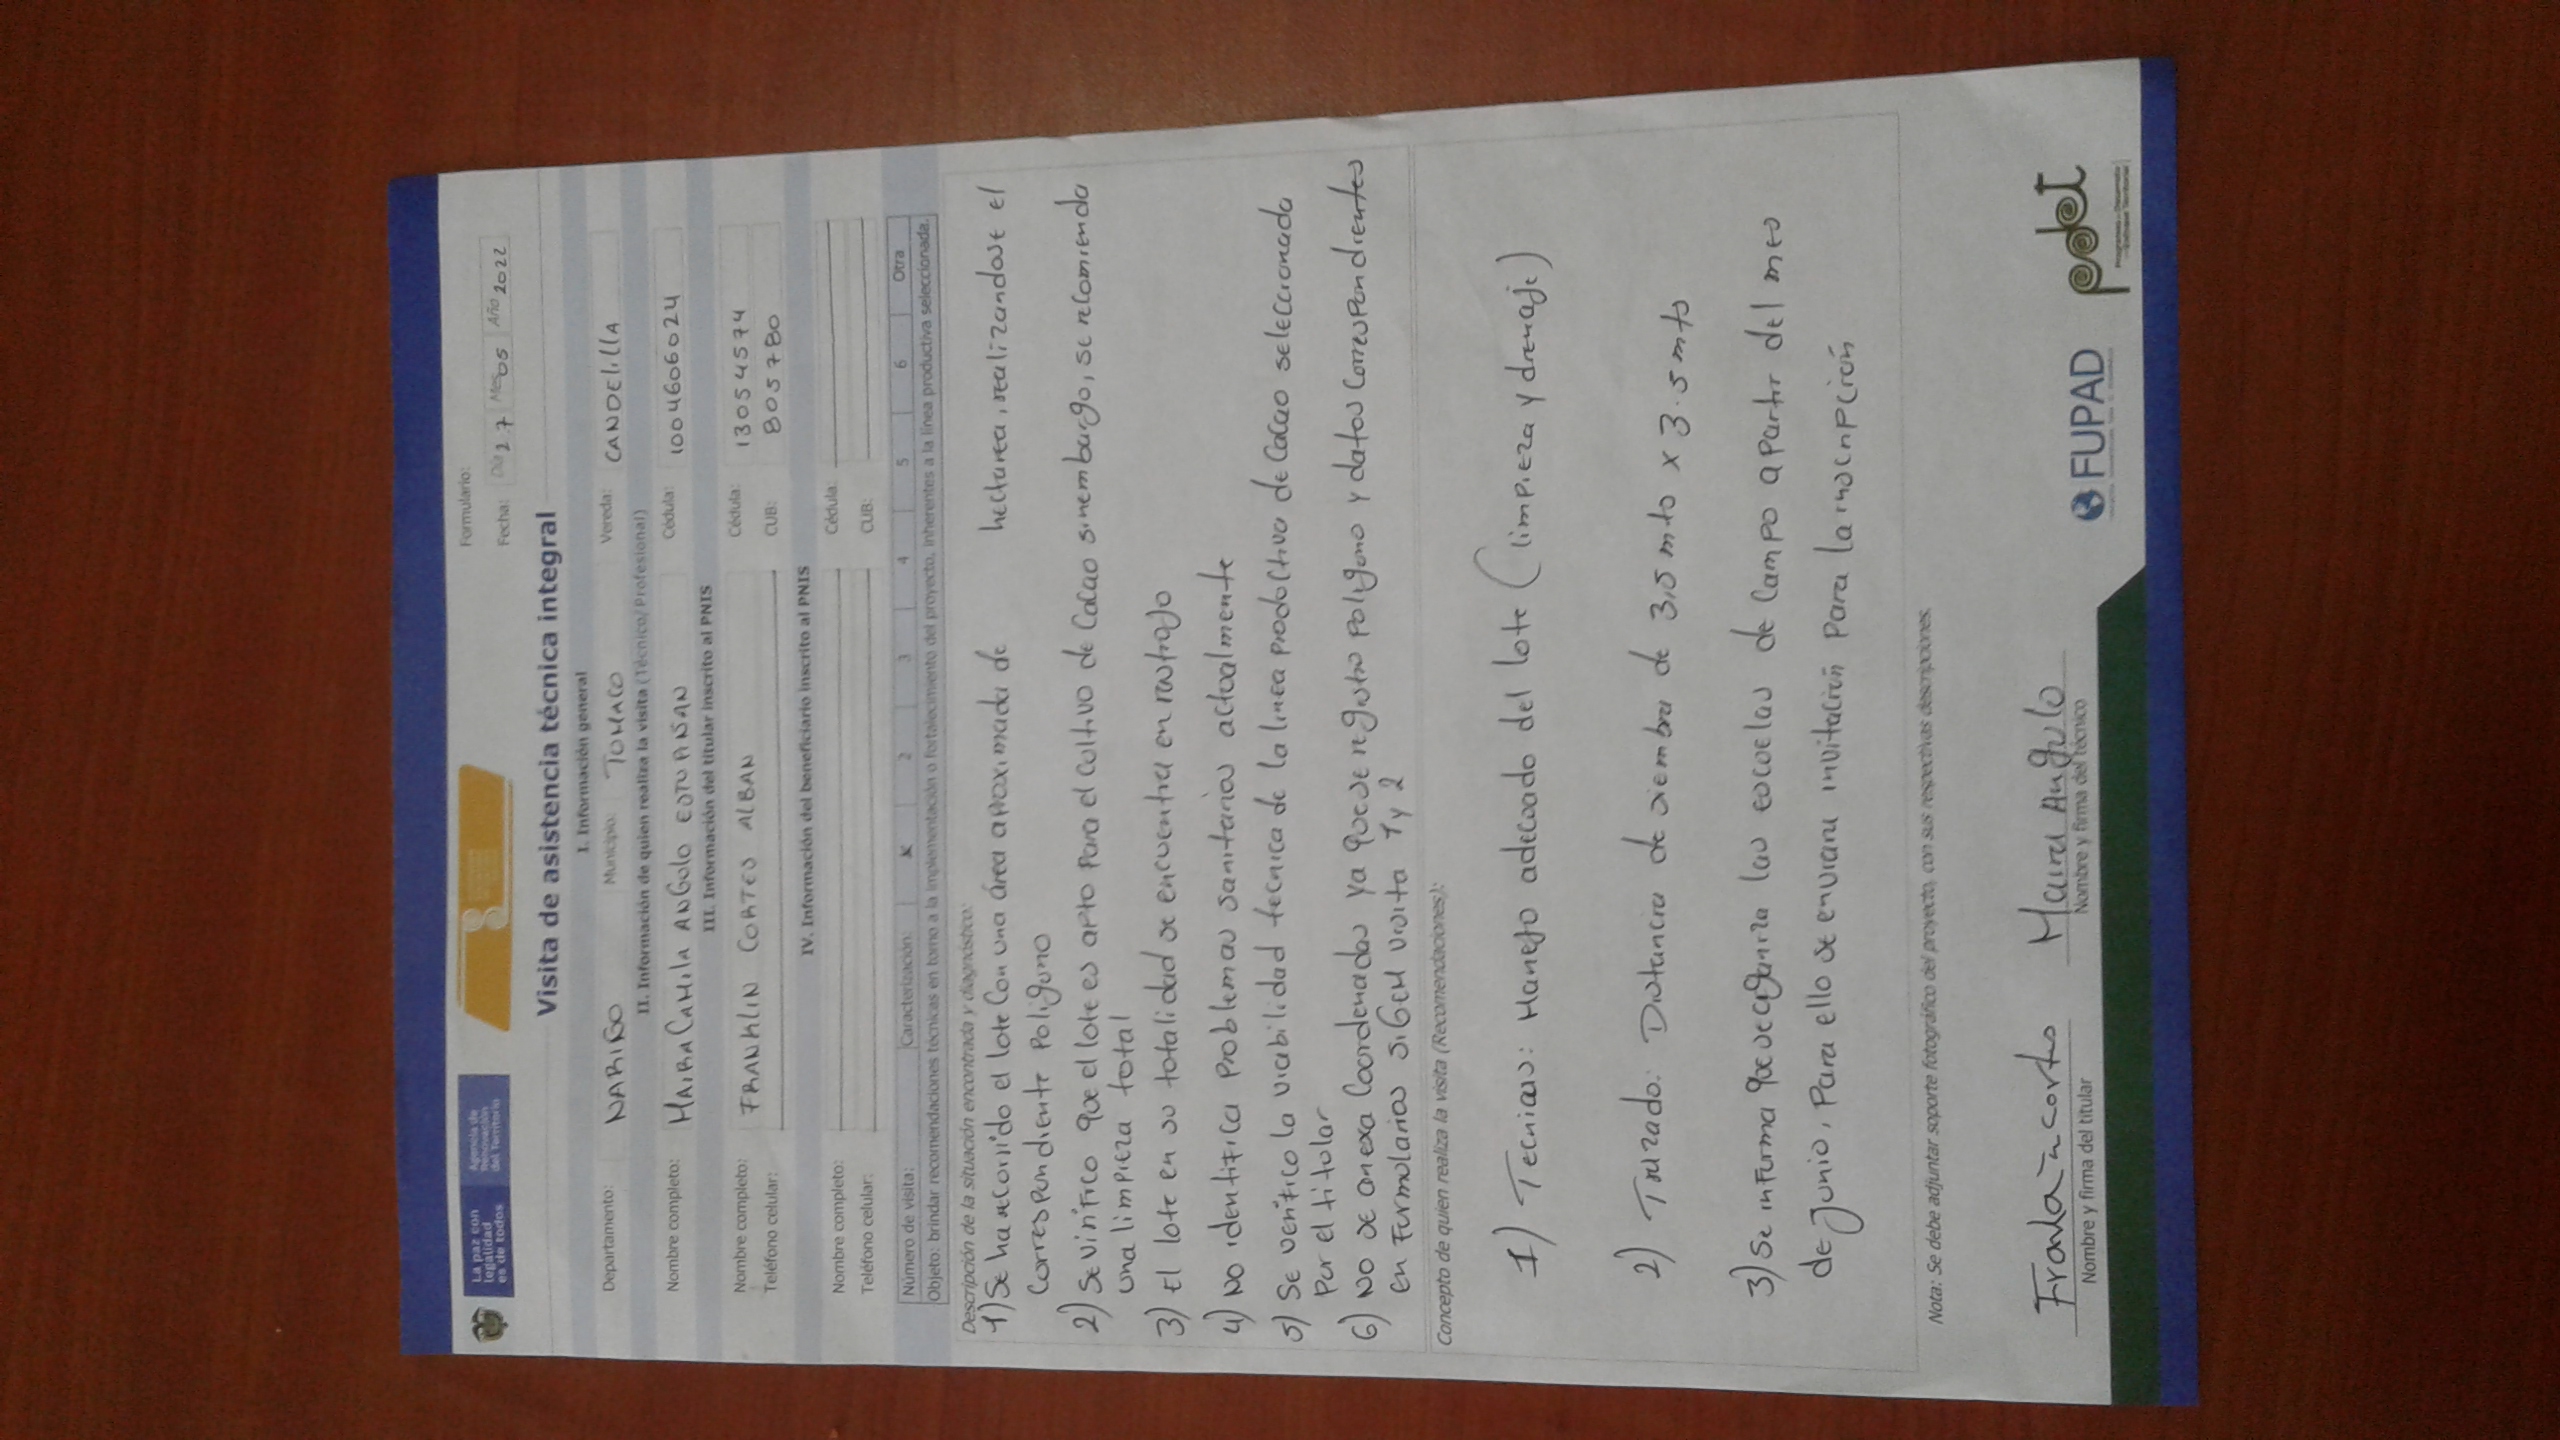 La paz con
legalidad
es de todos
Agencia de
Renovación
del Territorio
Formulario:
Fecha: Día 27 Mes 05 Año 2022
Visita de asistencia técnica integral
I. Información general
Departamento: NARIÑO Municipio: TUMACO Vereda: CANDELILLA
II. Información de quien realiza la visita (Técnico/Profesional)
Nombre completo: MAIRA CAMILA ANGULO ESTUPAÑAN Cédula: 1004606024
III. Información del titular inscrito al PNIS
Nombre completo: FRANKLIN CORTES ALBAN Cédula: 13054574
Teléfono celular: CUB: 8057780
IV. Información del beneficiario inscrito al PNIS
Nombre completo: Cédula:
Teléfono celular: CUB:
Número de visita: Caracterización: X 2 3 4 5 6 Otra
Objeto: brindar recomendaciones técnicas en torno a la implementación o fortalecimiento del proyecto, inherentes a la línea productiva seleccionada.
Descripción de la situación encontrada y diagnóstico:
1) Se ha recorrido el lote Con una área aproximada de hectarea, realizandose el
Correspondiente Poligono
2) Se virifico que el lote es apto Para el cultivo de Cacao sinembargo, se recomienda
una limpieza total
3) El lote en su totalidad se encuentra en rastrojo
4) No identifica Problemas sanitarios actualmente
5) Se verifico la viabilidad tecnica de la linea productiva de Cacao seleccionada
Por el titular
6) No se anexa Coordenadas ya que se registro Poligono y datos Correspondientes
en Formularios SIGEM visita 1 y 2
Concepto de quien realiza la visita (Recomendaciones):
1) Tecnicas: Manejo adecuado del lote (limpieza y drenaje)
2) Trazado: Distancia de siembra de 3,5 mts x 3.5 mts
3) Se informa que se organiza las escuelas de Campo apartir del mes
de Junio, Para ello se enviara invitación Para la inscripción
Nota: Se debe adjuntar soporte fotográfico del proyecto, con sus respectivas descripciones.
Franklin cortes Maira Angulo
Nombre y firma del titular Nombre y firma del técnico
FUPAD
pdet
Programas de Desarrollo
con Enfoque Territorial